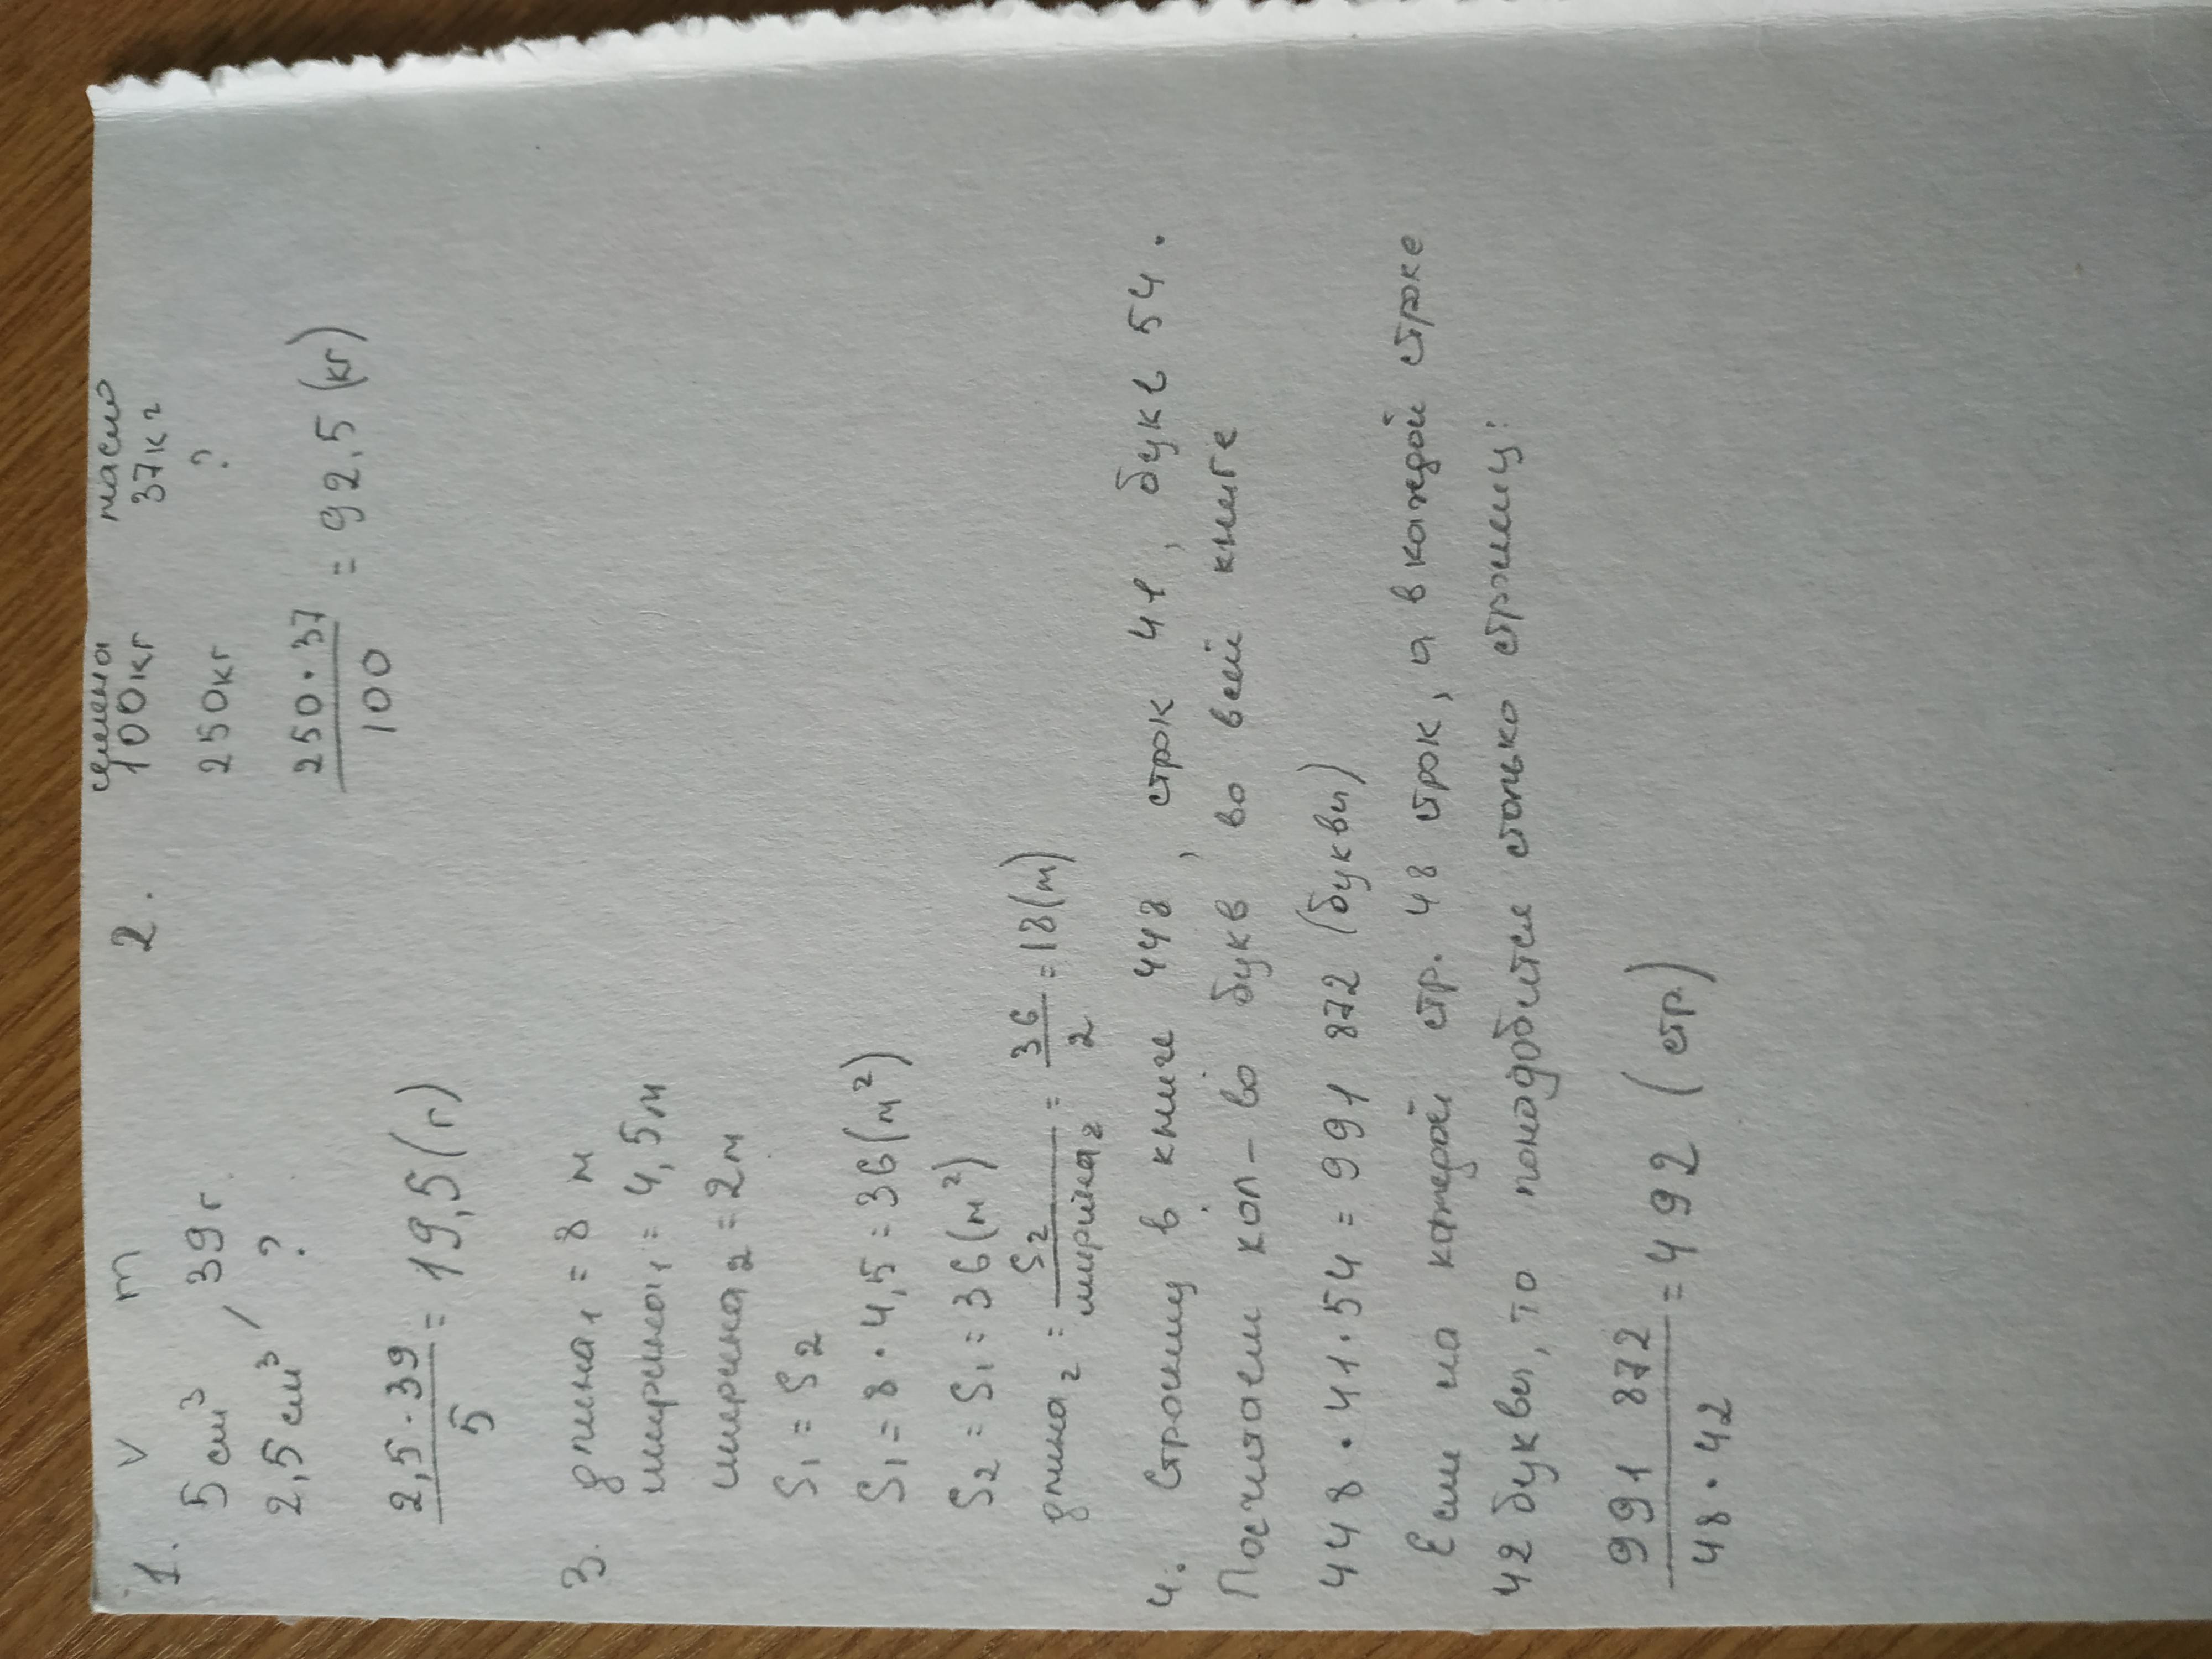 1. V m
5 см³ / 39 г.
2,5 см³ ?
2,5 · 39 / 5 = 19,5 (г)
2. семена масло
100 кг 37 кг
250 кг ?
250 · 37 / 100 = 92,5 (кг)
3. длина₁ = 8 м
ширина₁ = 4,5 м
ширина₂ = 2 м
S₁ = S₂
S₁ = 8 · 4,5 = 36 (м²)
S₂ = S₁ = 36 (м²)
длина₂ = S₂ / ширина₂ = 36 / 2 = 18 (м)
4. Страниц в книге 448, строк 41, букв 54.
Посчитаем кол-во букв во всей книге
448 · 41 · 54 = 991 872 (буквы)
Если на каждой стр. 48 строк, а в каждой строке
42 буквы, то понадобится столько страниц:
991 872 / 48 · 42 = 492 (стр.)